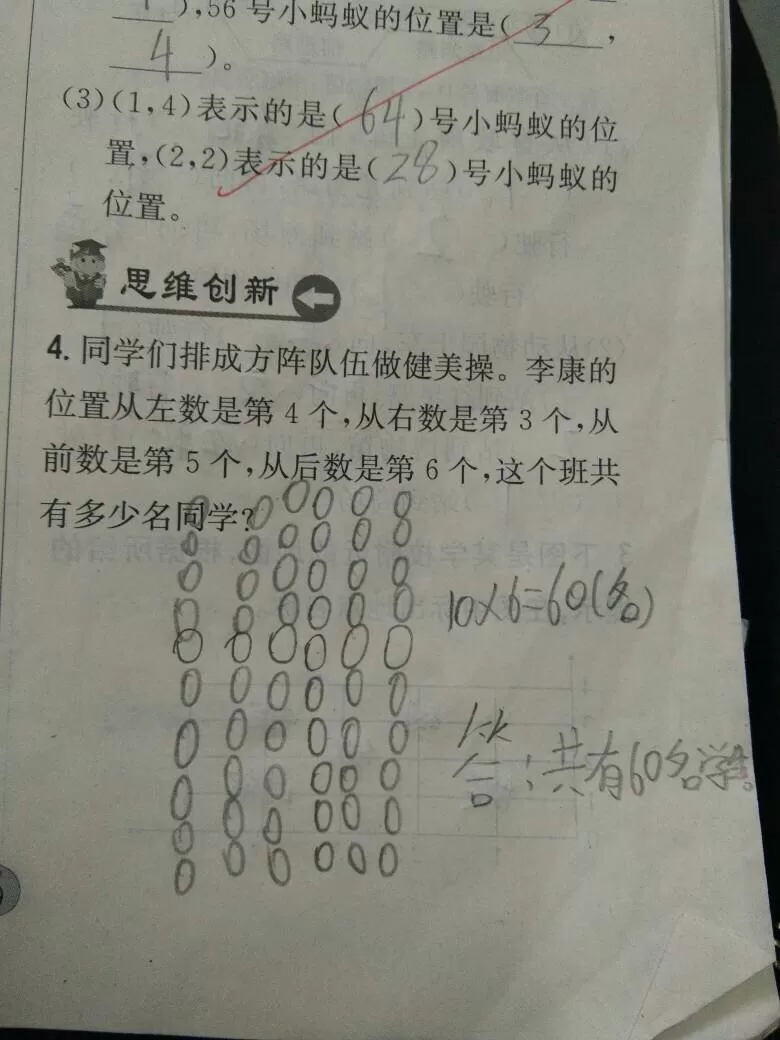 ),56号小蚂蚁的位置是( 3 ,
4 )。
(3)(1,4)表示的是( 64 )号小蚂蚁的位
置,(2,2)表示的是( 28 )号小蚂蚁的
位置。
思维创新
4. 同学们排成方阵队伍做健美操。李康的
位置从左数是第 4 个,从右数是第 3 个,从
前数是第 5 个,从后数是第 6 个,这个班共
有多少名同学?
10×6=60(名)
答:共有60名学生。